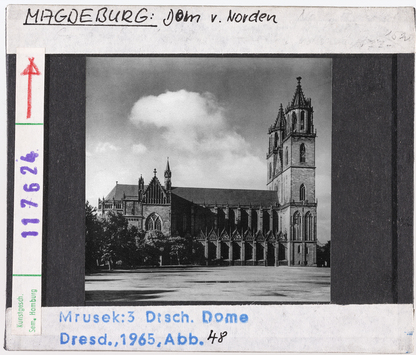 MAGDEBURG: Dom v. Norden
117624
Kunstgesch.
Sem. Hamburg
Mrusek:3 Dtsch. Dome
Dresd.,1965,Abb. 48